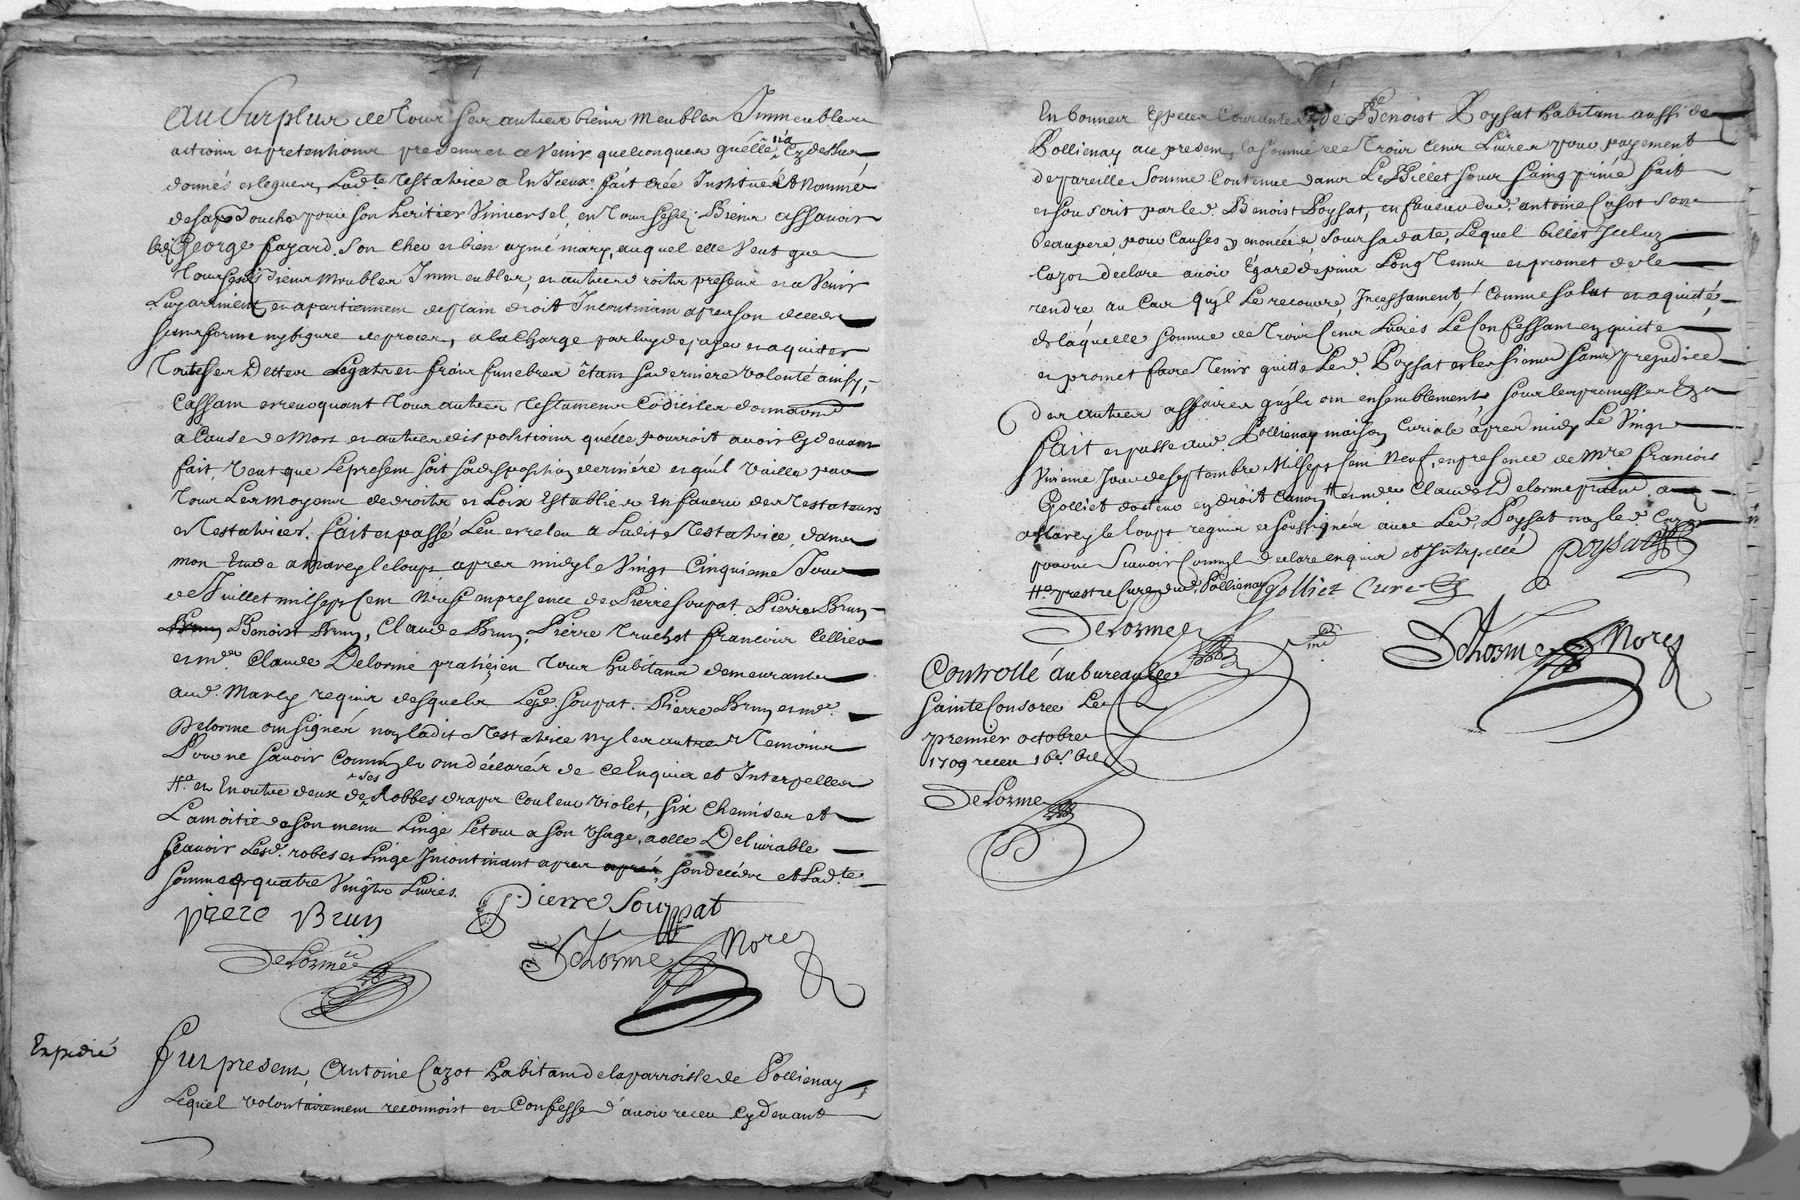 Au Surplus de Tous ses autres biens meubles Immeubles
actions et pretentions presens et a Venir quelconques quelle n'a Cy dessus
donnés et legues, Lad.te testatrice a En Iceux fait crée Institué Et Nommé
de sa propre bouche pour son heritier Universel, en Tous sesd. Biens assavoir
led. George fayard son cher et bien aymé mary, auquel elle Veut que
Tous sesd. biens meubles Immeubles, et autres droits presens et a Venir
Luy arrivent et apartiennent de plain droit Incontinant apres son decedz
sans forme ny figure de proces, a la Charge par luy de payer et aquiter
Toutes ses Dettes Legats et frais funebres êtant sa derniere volonté ainsy,
Cassant et revoquant Tous autres Testamens Codiciles donnations
a Cause de Mort et autres dispositions quélle pourroit avoir Cy devant
fait, Veut que Le present soit sa disposition derniére et quil Vaille par
Tous Les moyens de droits et Loix Establies En faveur des Testateurs
et Testatrices. fait et passé Leu et releu a Ladite Testatrice, dans
mon Etude a Marcy le loup apres midy le Vingt Cinquieme Jour
de Juillet mil sept Cent Neuf en presence de Pierre Soupat, Pierre Brun
Brun Benoist Brun, Claude Brun, Pierre Truchot francois Cellier
et m.e Claude Delorme praticien Tous habitans demeurants
aud. Marcy requis desquels Lesd. Soupat. Pierre Brun et m.e
Delorme ont signéz non ladite Testatrice ny les autres Temoins
Pour ne savoir Comm'ils ont déclaréz de ce Enquis et Interpelles
# et En outre deux de ses Robbes draps Couleur violet, six Chemises et
La moitie de son menu Linge Le tout a son Usage, a elle Delivrable
scavoir Lesd. robes et Linge Incontinant apres aprés son decedz et Lad.te
somme de quatre Vingts Livres.
piere Brun
Pierre Souppat
DeLorme
DeLorme Nore
Expedié
Fut present, Antoine Cazot habitant de la parroisse de Pollienay
Lequel volontairement reconnoist et Confesse d'avoir receu Cy devant
En bonnes Especes Courantes de Benoist Poysat habitant aussi de
Pollienay a ce present, la somme de Trois Cens Livres pour payement
de pareille somme Contenue dans Le Billet sous saing privé fait
et souscrit par led. Benoist Poysat, en faveur dud. antoine Casot son
beaupere pour Causes y enoncées, sous sa date, Lequel billet Iceluy
Cazot déclare avoir Egaré depuis Long Tems et promet de le
rendre au Cas qu'il Le recouvre Incessament, Comme solut et aquité,
de láquelle somme de Trois Cens Livres Le Confessant en quitte
et promet faire Tenir quitte Led. Poysat et les siens sans prejudice
des autres affaires qu'ils ont ensemblement, sous les promesses Et a
fait et passé aud. Pollienay maison Curiale aprés midy Le Vingt
Uniéme Jour de septembre Mil sept Cent Neuf, en presence de M.re francois
Golliet docteur en droit Canon # et m.e Claude Delorme praticien a
Marcy le loup requis et soussignés avec Led. Poysat non led. Cazot
pour ne Scavoir Comm'il declare enquis et Interpellé
# prestre Curé dud. Pollienay
Poysat
Golliet Curé
DeLorme
DeLorme Nore
Controllé au bureau de
Sainte Consorce Le
premier octobre
1709 receu
DeLorme